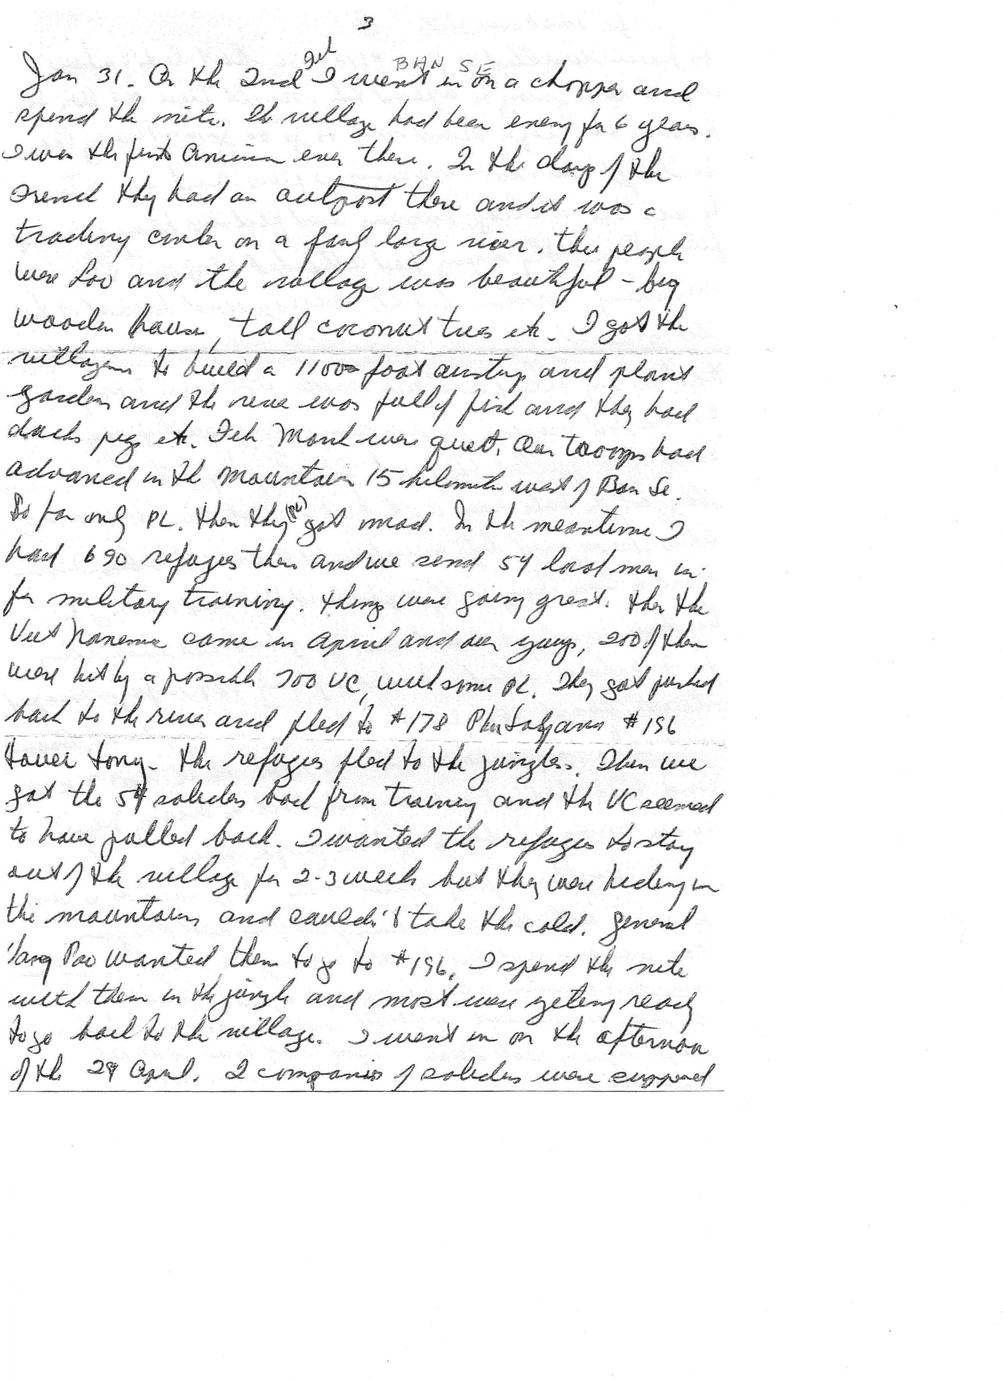 3
Jan 31. On the 2nd Feb I went in on a chopper and
BAN SE
spend the nite. The village had been enemy for 6 years.
I was the first American ever there. In the days of the
French they had an outpost there and it was a
trading center on a fairly large river. The people
were Lao and the village was beautiful - big
wooden houses, tall coconut trees etc. I got the
villagers to build a 1100 foot airstrip and plant
gardens and the river was full of fish and they had
ducks pigs etc. Feb March were quiet. Our troops had
advanced in the mountains 15 kilometers west of Ban Se.
So far only PL. Then they (PL) got mad. In the meantime I
had 690 refugees there and we send 54 local men in
for military training. Things were going great. Then the
Viet Namese came in April and our guys, 200 of them
were hit by a possible 700 VC, with some PL. They got pushed
back to the river and fled to #178 Phu and #196
. The refugees fled to the jungles. Then we
got the 54 soliders back from training and the VC seemed
to have pulled back. I wanted the refugees to stay
out of the village for 2-3 weeks but they were hiding in
the mountains and couldn't take the cold. General
Vang Pao wanted them to go to #196. I spend the nite
with them in the jungle and most were geting ready
to go back to the village. I went in on the afternoon
of the 29 April. 2 companies of soliders were supposed